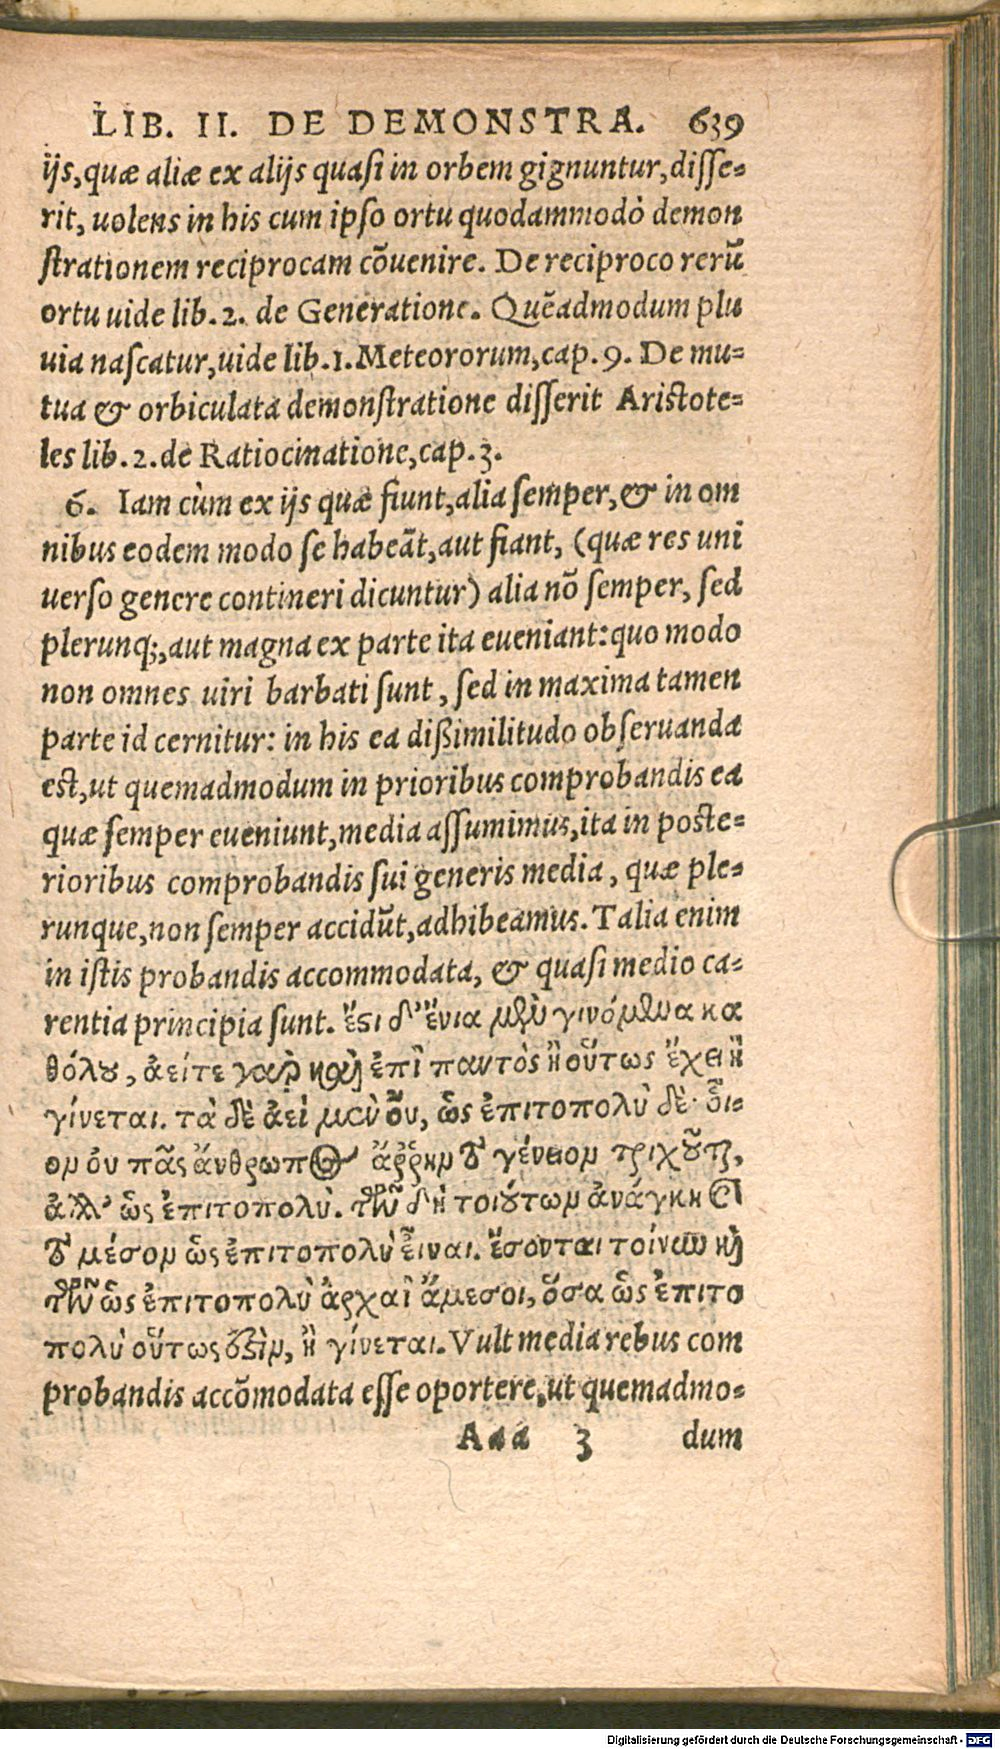 LIB. II. DE DEMONSTRA. 639
ijs, quæ aliæ ex alijs quasi in orbem gignuntur, disse-
rit, uolens in his cum ipso ortu quodammodò demon
strationem reciprocam cõuenire. De reciproco rerũ
ortu uide lib. 2. de Generatione. Quẽadmodum plu
uia nascatur, uide lib. 1. Meteororum, cap. 9. De mu-
tua & orbiculata demonstratione disserit Aristote-
les lib. 2. de Ratiocinatione, cap. 3.
6. Iam cùm ex ijs quæ fiunt, alia semper, & in om
nibus eodem modo se habeãt, aut fiant, (quæ res uni
uerso genere contineri dicuntur) alia nõ semper, sed
plerunq;, aut magna ex parte ita eueniant: quo modo
non omnes uiri barbati sunt, sed in maxima tamen
parte id cernitur: in his ea dißimilitudo obseruanda
est, ut quemadmodum in prioribus comprobandis ea
quæ semper eueniunt, media assumimus, ita in poste-
rioribus comprobandis sui generis media, quæ ple-
runque, non semper accidũt, adhibeamus. Talia enim
in istis probandis accommodata, & quasi medio ca-
rentia principia sunt. ἔςι δ' ἔνια μὲν γινόμενα κα
θόλου, ἀείτε γὰρ καὶ ἐπὶ παντὸς ἢ οὕτως ἔχει ἢ
γίνεται. τὰ δὲ ἀεὶ μὲν οὔ, ὡς ἐπιτοπολὺ δέ· οἷ-
ον οὐ πᾶς ἄνθρωπος ἄῤῥην τὸ γένειον τριχοῦται,
ἀλλ' ὡς ἐπιτοπολύ. τῶν δὴ τοιούτων ἀνάγκη καὶ
τὸ μέσον ὡς ἐπιτοπολὺ εἶναι. ἔσονται τοίνυν καὶ
τῶν ὡς ἐπιτοπολὺ ἀρχαὶ ἄμεσοι, ὅσα ὡς ἐπιτο
πολὺ οὕτως ἐςὶν, ἢ γίνεται. Vult media rebus com
probandis accõmodata esse oportere, ut quemadmo-
Aaa 3 dum
Digitalisierung gefördert durch die Deutsche Forschungsgemeinschaft - DFG